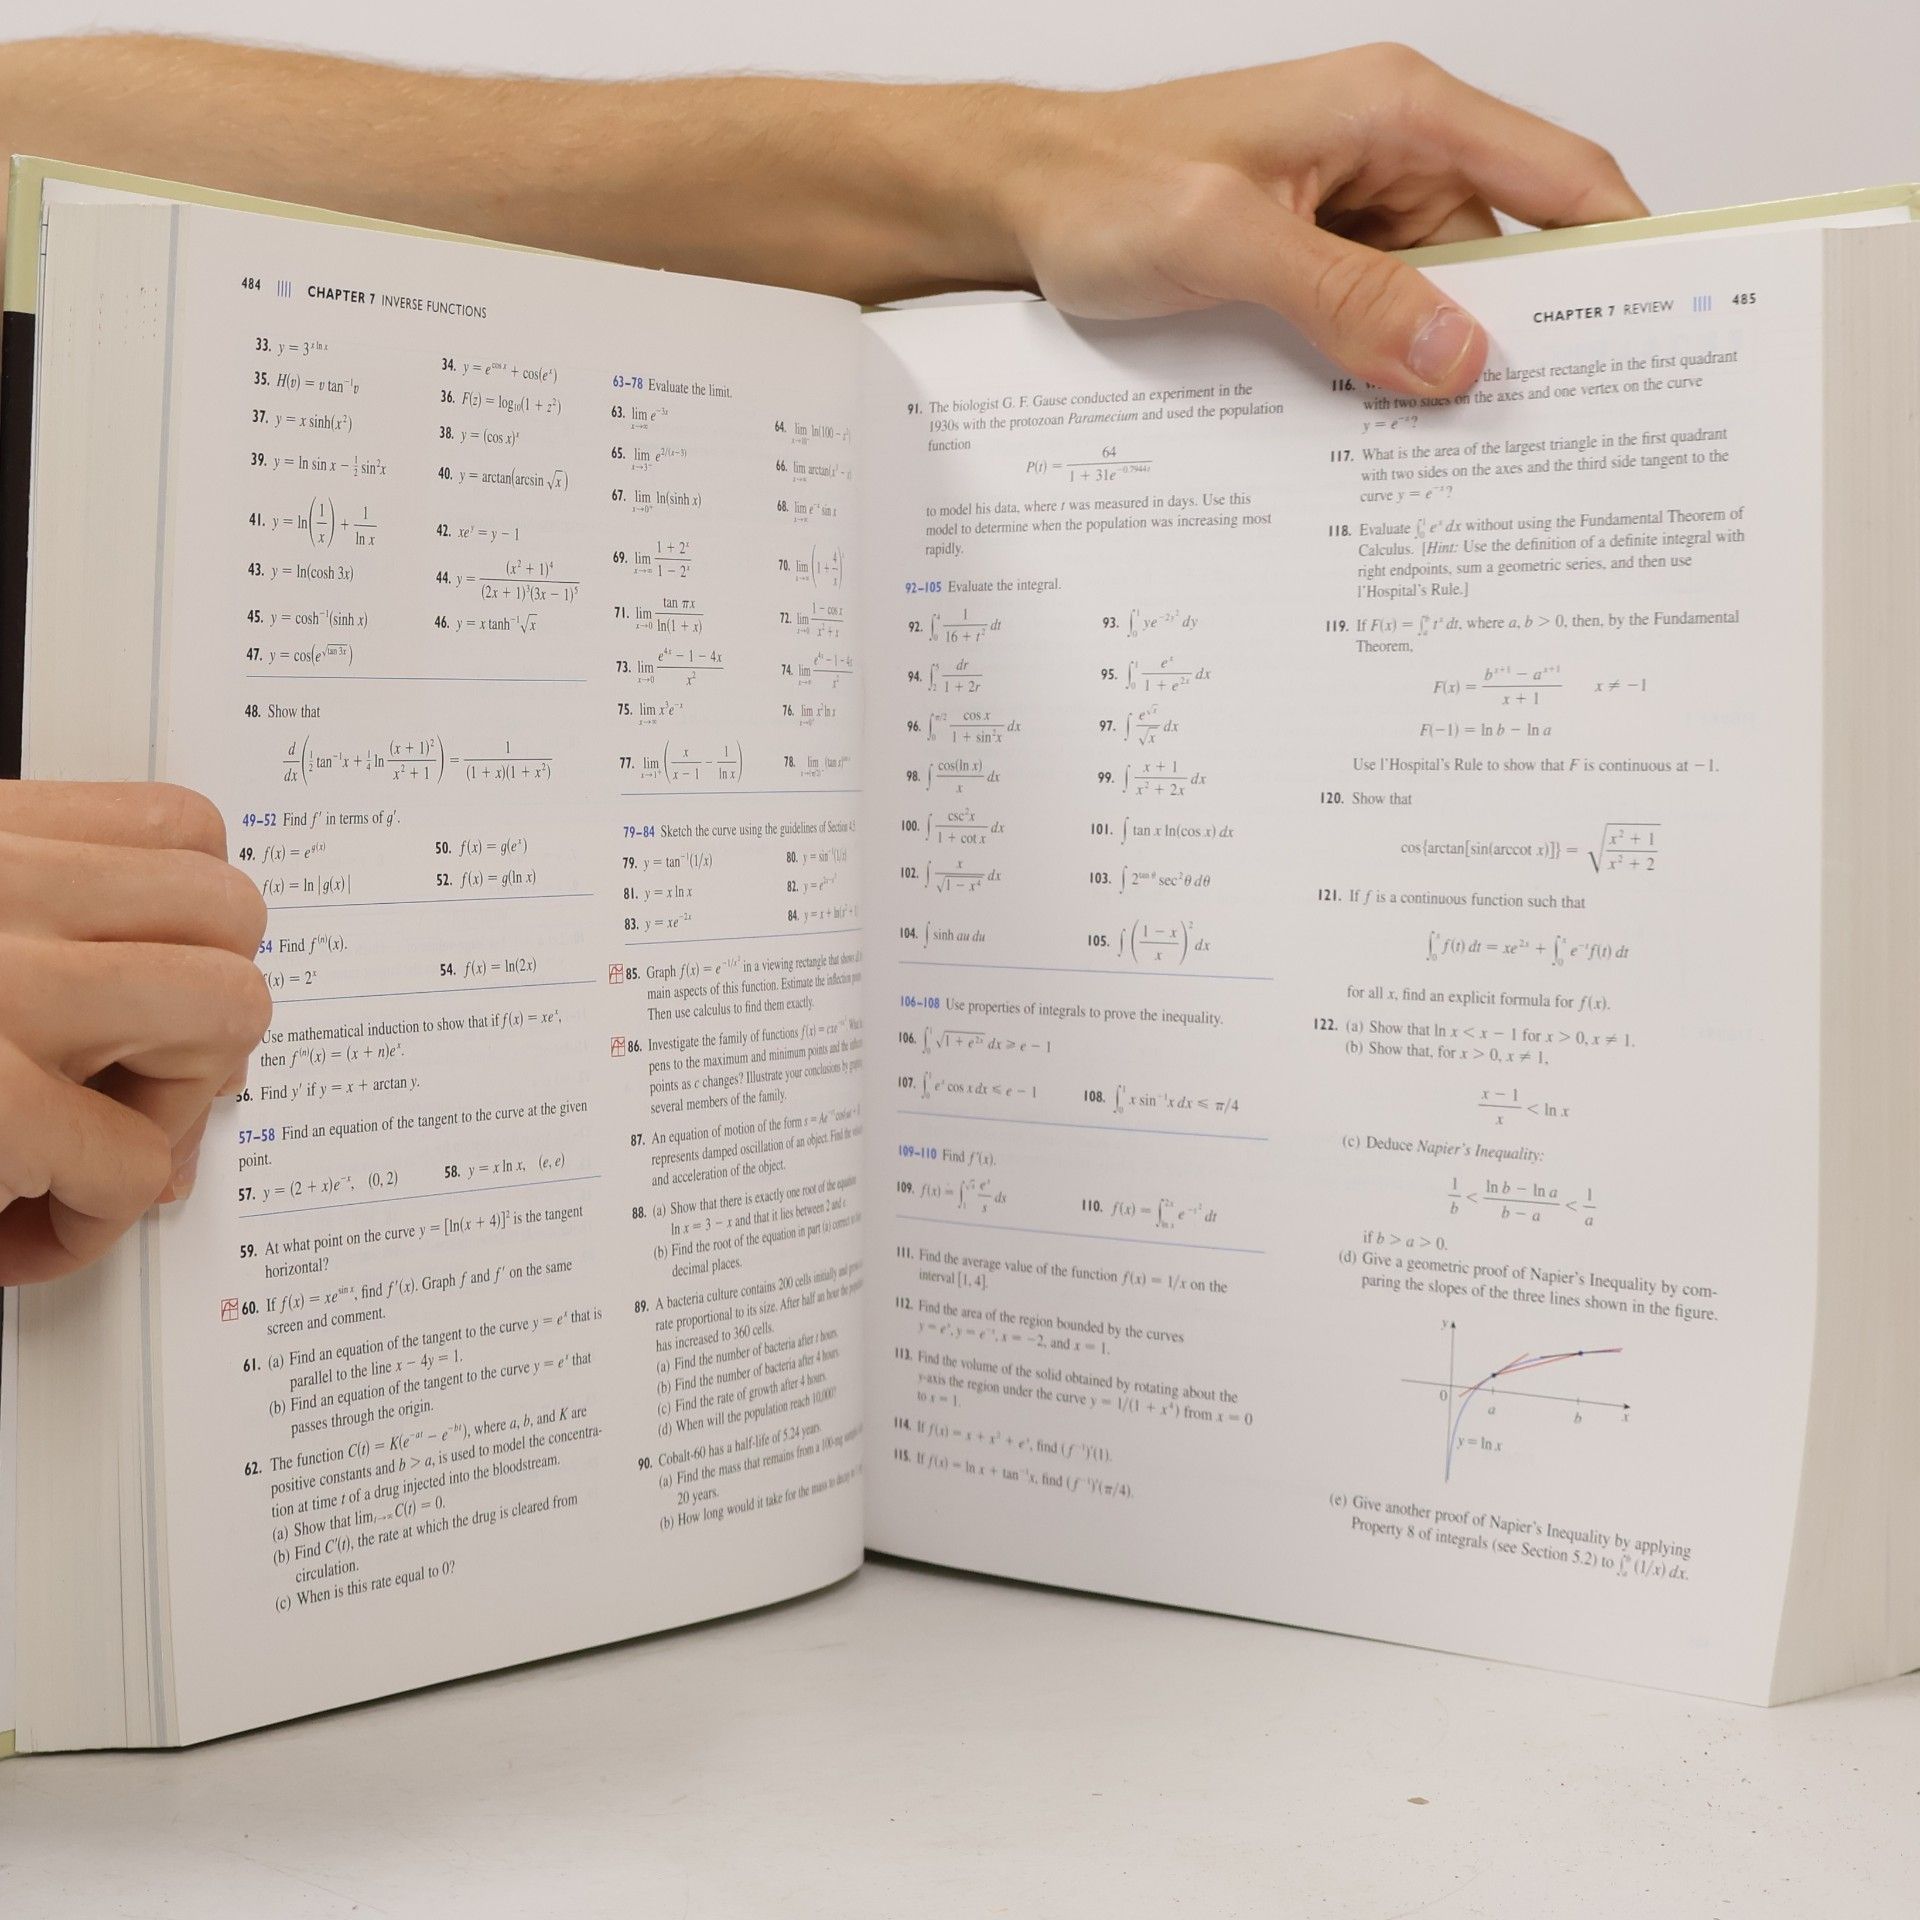 484 CHAPTER 7 INVERSE FUNCTIONS
33. y = 3^{x ln x}
34. y = e^{cos x} + cos(e^x)
35. H(v) = v tan⁻¹v
36. F(z) = log₁₀(1 + z²)
37. y = x sinh(x²)
38. y = (cos x)^x
39. y = ln sin x − ½ sin²x
40. y = arctan(arcsin √x)
41. y = ln(1/x) + 1/ln x
42. xe^y = y − 1
43. y = ln(cosh 3x)
44. y = (x² + 1)⁴/((2x + 1)³(3x − 1)⁵)
45. y = cosh⁻¹(sinh x)
46. y = x tanh⁻¹√x
47. y = cos(e^{√(tan 3x)})
48. Show that
d/dx (½ tan⁻¹x + ¼ ln (x + 1)²/(x² + 1)) = 1/((1 + x)(1 + x²))
49–52 Find f′ in terms of g′.
49. f(x) = e^{g(x)}
50. f(x) = g(e^x)
f(x) = ln |g(x)|
52. f(x) = g(ln x)
54 Find f^{(n)}(x).
(x) = 2^x
54. f(x) = ln(2x)
Use mathematical induction to show that if f(x) = xe^x,
then f^{(n)}(x) = (x + n)e^x.
56. Find y′ if y = x + arctan y.
57–58 Find an equation of the tangent to the curve at the given
point.
57. y = (2 + x)e^{−x}, (0, 2)
58. y = x ln x, (e, e)
59. At what point on the curve y = [ln(x + 4)]² is the tangent
horizontal?
60. If f(x) = xe^{sin x}, find f′(x). Graph f and f′ on the same
screen and comment.
61. (a) Find an equation of the tangent to the curve y = e^x that is
parallel to the line x − 4y = 1.
(b) Find an equation of the tangent to the curve y = e^x that
passes through the origin.
62. The function C(t) = K(e^{−at} − e^{−bt}), where a, b, and K are
positive constants and b > a, is used to model the concentra-
tion at time t of a drug injected into the bloodstream.
(a) Show that lim_{t→∞} C(t) = 0.
(b) Find C′(t), the rate at which the drug is cleared from
circulation.
(c) When is this rate equal to 0?
63–78 Evaluate the limit.
63. lim_{x→∞} e^{−3x}
64. lim_{x→10⁻} ln(100 − x²)
65. lim_{x→3⁻} e^{2/(x−3)}
66. lim_{x→∞} arctan(x³ − x)
67. lim_{x→0⁺} ln(sinh x)
68. lim_{x→∞} e^{−x} sin x
69. lim_{x→∞} (1 + 2^x)/(1 − 2^x)
70. lim_{x→∞} (1 + 4/x)^x
71. lim_{x→0} tan πx/ln(1 + x)
72. lim_{x→0} (1 − cos x)/(x² + x)
73. lim_{x→0} (e^{4x} − 1 − 4x)/x²
74. lim_{x→∞} (e^{4x} − 1 − 4x)/x²
75. lim_{x→∞} x³e^{−x}
76. lim_{x→0⁺} x² ln x
77. lim_{x→1⁺} (x/(x − 1) − 1/ln x)
78. lim (tan x)
79–84 Sketch the curve using the guidelines of Section 4.5
79. y = tan⁻¹(1/x)
80. y = sin⁻¹(1/x)
81. y = x ln x
82. y = e^{2x−x²}
83. y = xe^{−2x}
84. y = x + ln(x² + 1)
85. Graph f(x) = e^{−1/x²} in a viewing rectangle that shows all
main aspects of this function. Estimate the inflection
Then use calculus to find them exactly.
86. Investigate the family of functions f(x) = cxe^{−cx²}
pens to the maximum and minimum points and the
points as c changes? Illustrate your conclusions by
several members of the family.
87. An equation of motion of the form s = Ae^{−ct} cos(ωt +
represents damped oscillation of an object. Find the
and acceleration of the object.
88. (a) Show that there is exactly one root of the equation
ln x = 3 − x and that it lies between 2 and e.
(b) Find the root of the equation in part (a) correct to
decimal places.
89. A bacteria culture contains 200 cells initially and
rate proportional to its size. After half an hour the
has increased to 360 cells.
(a) Find the number of bacteria after t hours.
(b) Find the number of bacteria after 4 hours.
(c) Find the rate of growth after 4 hours.
(d) When will the population reach 10,000?
90. Cobalt-60 has a half-life of 5.24 years.
(a) Find the mass that remains from a 100-mg
20 years.
(b) How long would it take for the mass to decay to
CHAPTER 7 REVIEW 485
91. The biologist G. F. Gause conducted an experiment in the
1930s with the protozoan Paramecium and used the population
function
P(t) = 64/(1 + 31e^{−0.7944t})
to model his data, where t was measured in days. Use this
model to determine when the population was increasing most
rapidly.
92–105 Evaluate the integral.
92. ∫₀⁴ 1/(16 + t²) dt
93. ∫₀¹ ye^{−2y²} dy
94. ∫₂⁵ dr/(1 + 2r)
95. ∫₀¹ e^x/(1 + e^{2x}) dx
96. ∫₀^{π/2} cos x/(1 + sin²x) dx
97. ∫ e^{√x}/√x dx
98. ∫ cos(ln x)/x dx
99. ∫ (x + 1)/(x² + 2x) dx
100. ∫ csc²x/(1 + cot x) dx
101. ∫ tan x ln(cos x) dx
102. ∫ x/√(1 − x⁴) dx
103. ∫ 2^{tan θ} sec²θ dθ
104. ∫ sinh au du
105. ∫ ((1 − x)/x)² dx
106–108 Use properties of integrals to prove the inequality.
106. ∫₀¹ √(1 + e^{2x}) dx ≥ e − 1
107. ∫₀¹ e^x cos x dx ≤ e − 1
108. ∫₀¹ x sin⁻¹x dx ≤ π/4
109–110 Find f′(x).
109. f(x) = ∫₁^{√x} e^s/s ds
110. f(x) = ∫_{ln x}^{2x} e^{−t²} dt
111. Find the average value of the function f(x) = 1/x on the
interval [1, 4].
112. Find the area of the region bounded by the curves
y = e^x, y = e^{−x}, x = −2, and x = 1.
113. Find the volume of the solid obtained by rotating about the
y-axis the region under the curve y = 1/(1 + x⁴) from x = 0
to x = 1.
114. If f(x) = x + x² + e^x, find (f⁻¹)′(1).
115. If f(x) = ln x + tan⁻¹x, find (f⁻¹)′(π/4).
116. the largest rectangle in the first quadrant
with two sides on the axes and one vertex on the curve
y = e^{−x}?
117. What is the area of the largest triangle in the first quadrant
with two sides on the axes and the third side tangent to the
curve y = e^{−x}?
118. Evaluate ∫₀¹ e^x dx without using the Fundamental Theorem of
Calculus. [Hint: Use the definition of a definite integral with
right endpoints, sum a geometric series, and then use
l'Hospital's Rule.]
119. If F(x) = ∫_a^b t^x dt, where a, b > 0, then, by the Fundamental
Theorem,
F(x) = (b^{x+1} − a^{x+1})/(x + 1) x ≠ −1
F(−1) = ln b − ln a
Use l'Hospital's Rule to show that F is continuous at −1.
120. Show that
cos{arctan[sin(arccot x)]} = √((x² + 1)/(x² + 2))
121. If f is a continuous function such that
∫₀^x f(t) dt = xe^{2x} + ∫₀^x e^{−t}f(t) dt
for all x, find an explicit formula for f(x).
122. (a) Show that ln x < x − 1 for x > 0, x ≠ 1.
(b) Show that, for x > 0, x ≠ 1,
(x − 1)/x < ln x
(c) Deduce Napier's Inequality:
1/b < (ln b − ln a)/(b − a) < 1/a
if b > a > 0.
(d) Give a geometric proof of Napier's Inequality by com-
paring the slopes of the three lines shown in the figure.
y
0 a b x
y = ln x
(e) Give another proof of Napier's Inequality by applying
Property 8 of integrals (see Section 5.2) to ∫_a^b (1/x) dx.